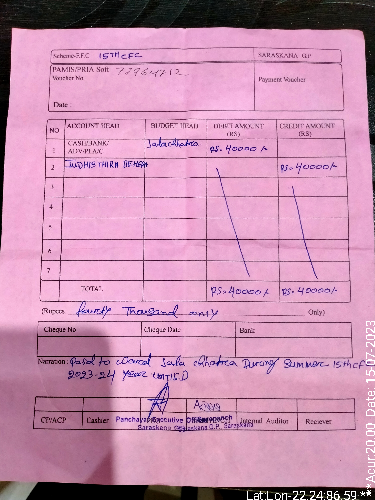 Scheme-F.F.C 15TH CFC SARASKANA G.P
PAMIS/PRIA Soft
Voucher No Payment Voucher
Date
NO ACCOUNT HEAD BUDGET HEAD DEBIT AMOUNT (RS) CREDIT AMOUNT (RS)
1 CASH/BANK/ ADV-PLA/C Jalachhatra RS. 40000/-
2 RS. 40000/-
3
4
5
6
7
TOTAL RS. 40000/- RS. 40000/-
(Rupees Thousand only Only)
Cheque No Cheque Date Bank
Narration: Paid to Jala chhatra During Summer 15th CF
2023-24 Year
CP/ACP Cashier Panchayat Executive Officer Sarapanch Internal Auditor Reciever
Saraskana G.P. Saraskana
Lat:Lon-22.24:86.59
**Acur:20.00, Date: 15-07-2023